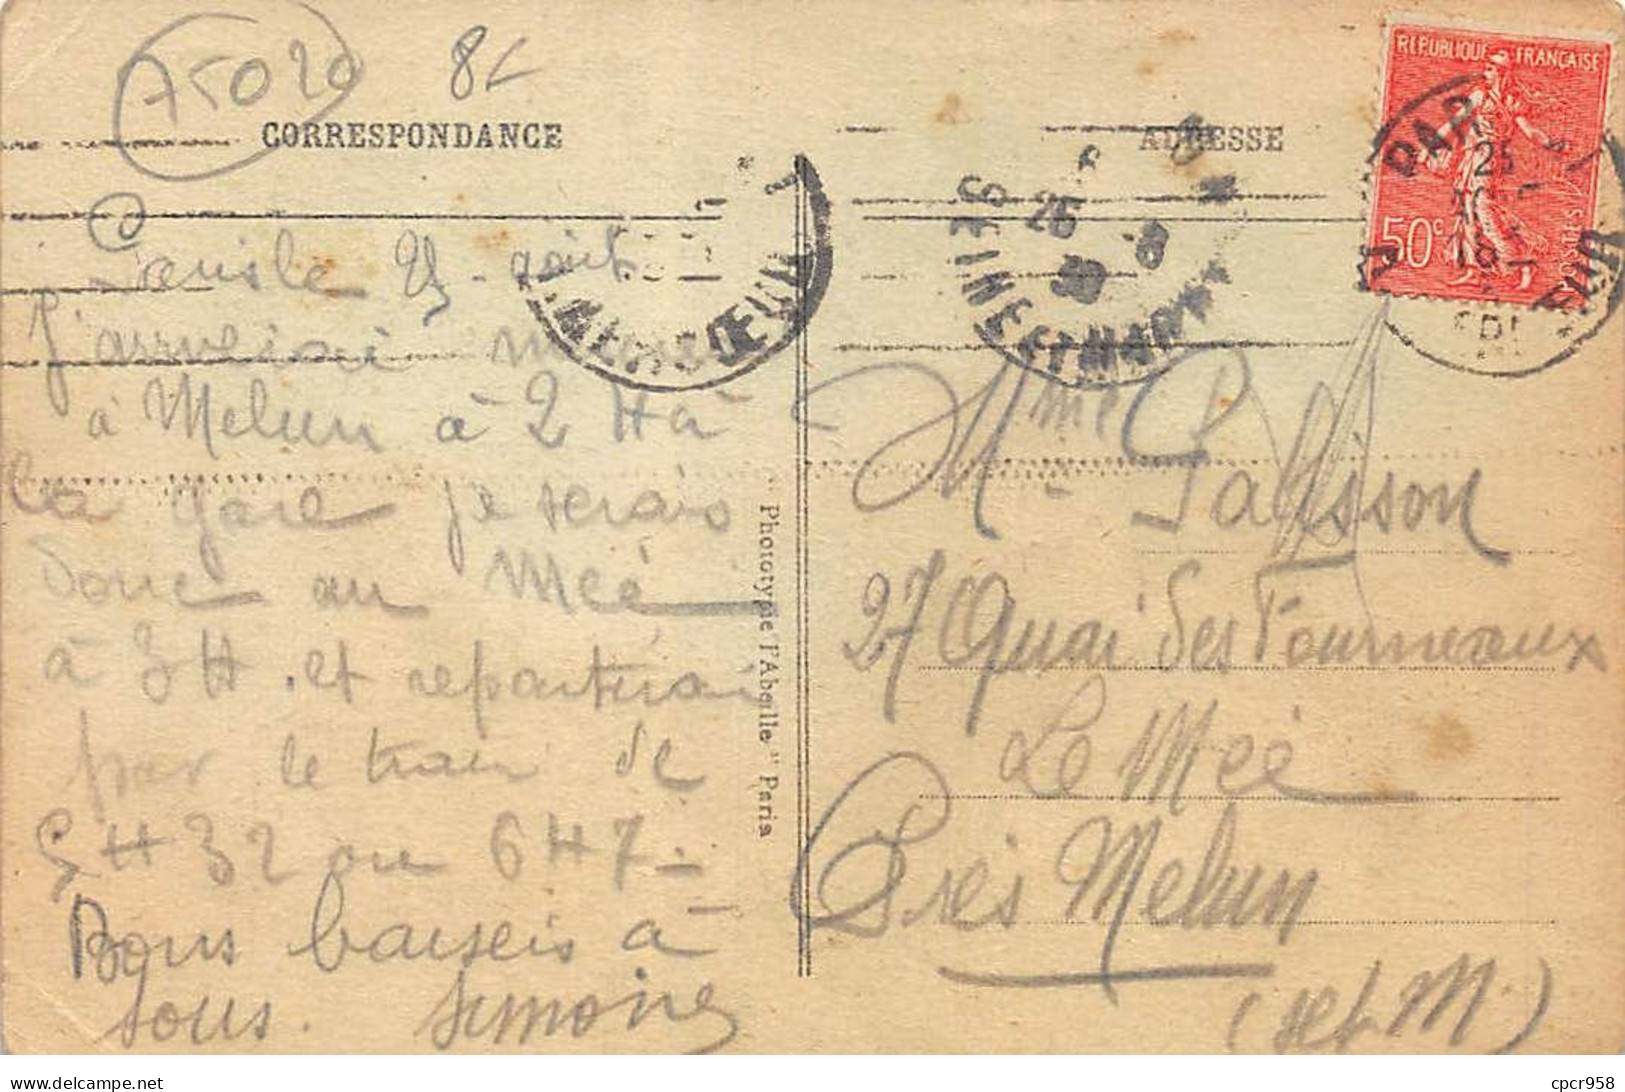 75020 8€
CORRESPONDANCE
Paris le 25 - août
J'arriverai
à Melun à 2 H à
la gare je serais
donc au Mée
à 3 H. et repartirai
par le train de
5 H 32 ou 6 H 7 -
Bons baisers à
tous. Simone
Phototypie l'Abeille" Paris
ADRESSE
REPUBLIQUE FRANCAISE
50c
POSTES
PAR
25
SEINE ET MARNE
26 -8
30
Mme Pallisson
27 Quai des Fourneaux
Le Mée
Près Melun
(S et M.)
cpcr958